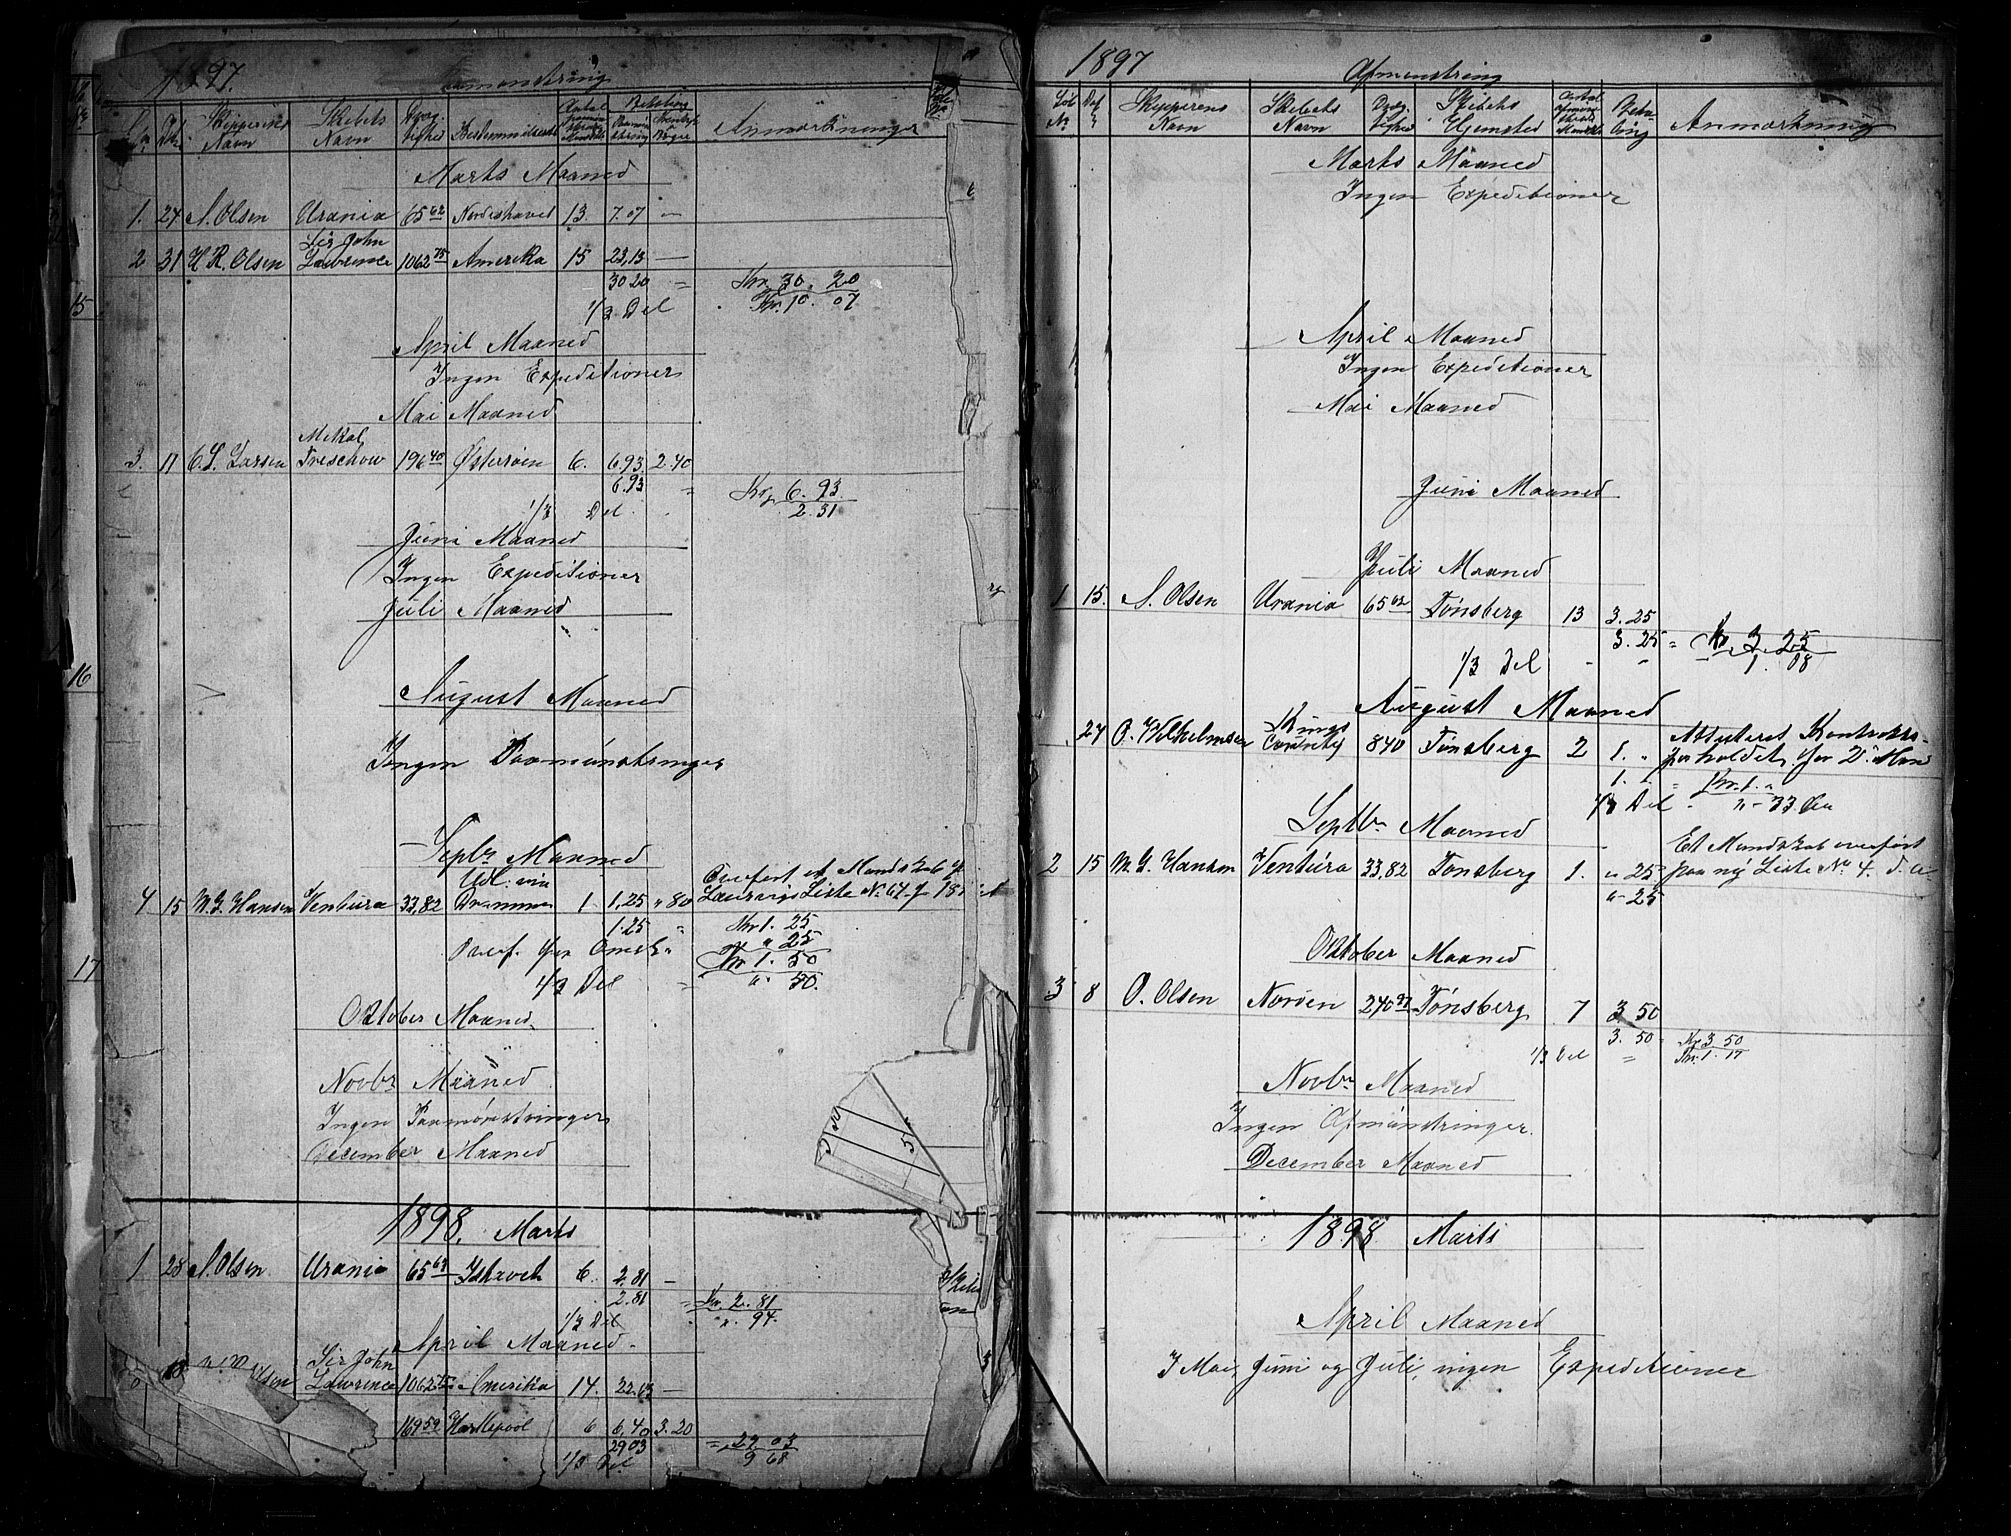 1897.
Skibets Navn
Anmærkninger
Marts Maaned
1. 24 S. Olsen Urania 65 62 Nordishavet 13. 7.07 —
2 31 H. R. Olsen Sir John Lawrence 1062 75 Amerika 15 23,13 —
30 20 " Kr. 30. 20
1/3 Del " Kr. 10. 07
April Maaned
Ingen Expeditioner
Mai Maaned
3. 11 C. S. Larsen Treschow 196 40 Østersøen 6. 6.93 2.40
6.93 " Kr. 6. 93.
1/3 Del 2.31
Juni Maaned
Ingen Expeditioner
Juli Maaned
August Maaned
Ingen Paamønstringer
Septbr Maaned
4 15 M. G. Hansen Ventura 33,82 Udl. via Drammen 1 1,25 " 80 Overført et Mandskab
Laurvigs Liste No 64
1.25 " Kr 1. 25
Overf. " 25
Kr 1. 50
1/3 Del " " 50.
Oktober Maaned
Novbr Maaned
Ingen Paamønstringer
December Maaned
1898. Marts
1 28 S. Olsen Urania 65 63 Ishavet 6. 2.81 —
2.81 = Kr. 2. 81
1/3 Del " ". 94.
April Maaned
Olsen Sir John Lawrence 1062 75 Amerika 14. 22.63 —
169 59 Hartlepool 6 6,40 3.20
29 03 = 29 03
1/3 Del 9 68
15
16
17
1897
Afmønstring
Løb No Dat Skipperens Navn Skibets Navn Skibets Hjemsted Anmærkning
Marts Maaned
Ingen Expeditioner
April Maaned
Ingen Expeditioner
Mai Maaned
Juni Maaned
Juli Maaned
1 15. S. Olsen Urania 65 62 Tønsberg 13 3.25
3.25 = Kr. 3. 25
1/3 Del " " 1. 08
August Maaned
24 O. Wilhelmsen Kings County 840 Tønsberg 2 1. " Attesteret Kontrakts-
forholdet for 2 Man
1. " = Kr. 1. "
1/3 Del " " - 33
Septbr Maaned
2 15 M. G. Hansen Ventura 33,82 Tønsberg 1. " 25 Et Mandskab overført
paa ny Liste No 4. d. a.
" 25
Oktober Maaned
3 8 O. Olsen Norden 240 Tønsberg 7 3 50
3. 50 " Kr 3 50
1/3 Del = Kr. 1. 17
Novbr Maaned
Ingen Afmønstringer.
December Maaned
1898 Marts
April Maaned
I Mai, Juni og Juli, ingen Expeditioner